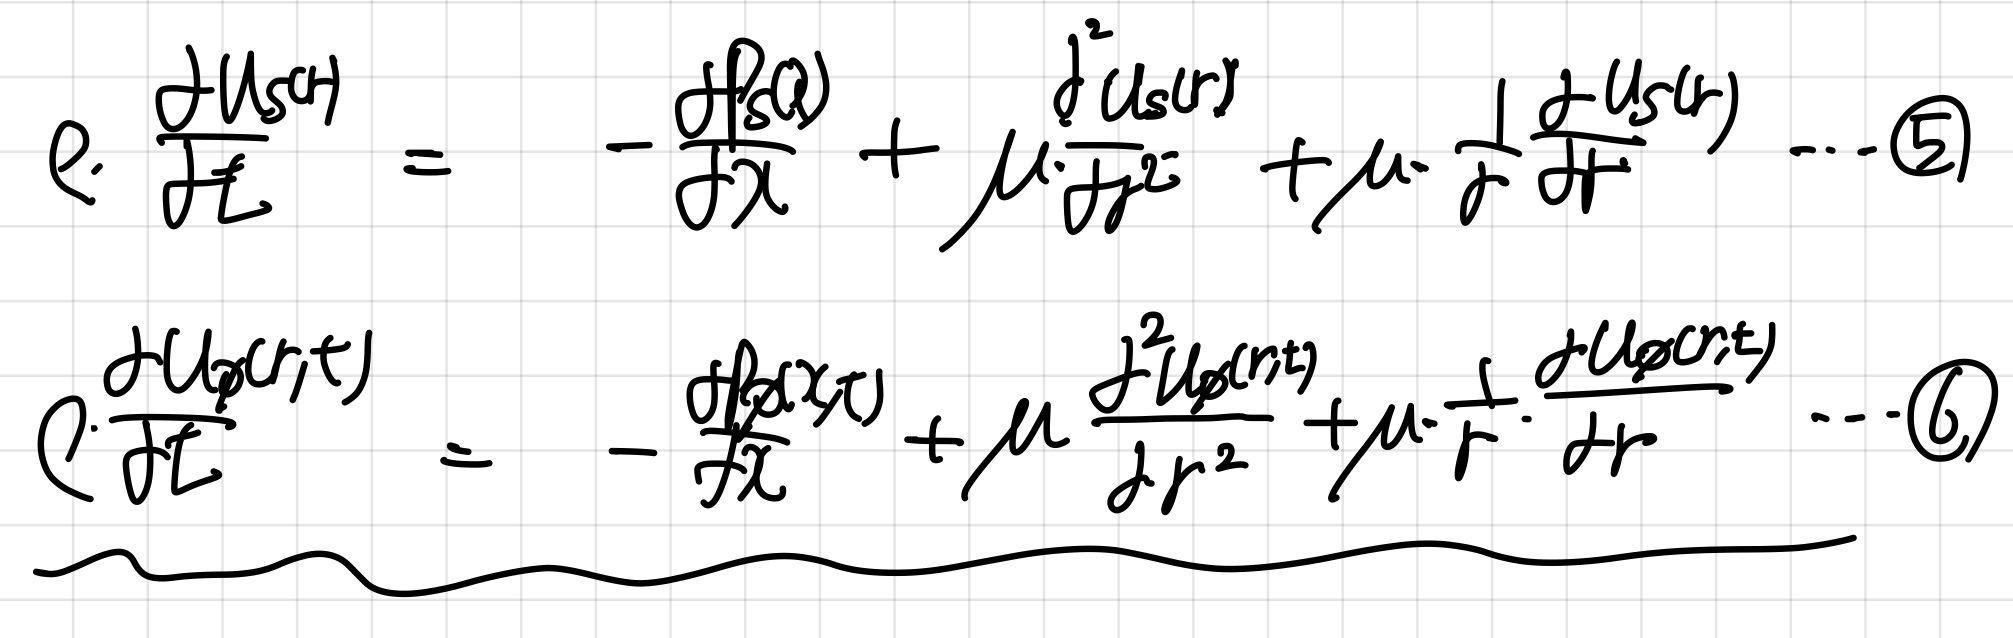 ρ· ∂u_s(r)/∂t = - ∂p_s(x)/∂x + μ· ∂²u_s(r)/∂r² + μ· 1/r ∂u_s(r)/∂r ... ⑤
ρ· ∂u_φ(r,t)/∂t = - ∂p_φ(x,t)/∂x + μ ∂²u_φ(r,t)/∂r² + μ· 1/r · ∂u_φ(r,t)/∂r ... ⑥